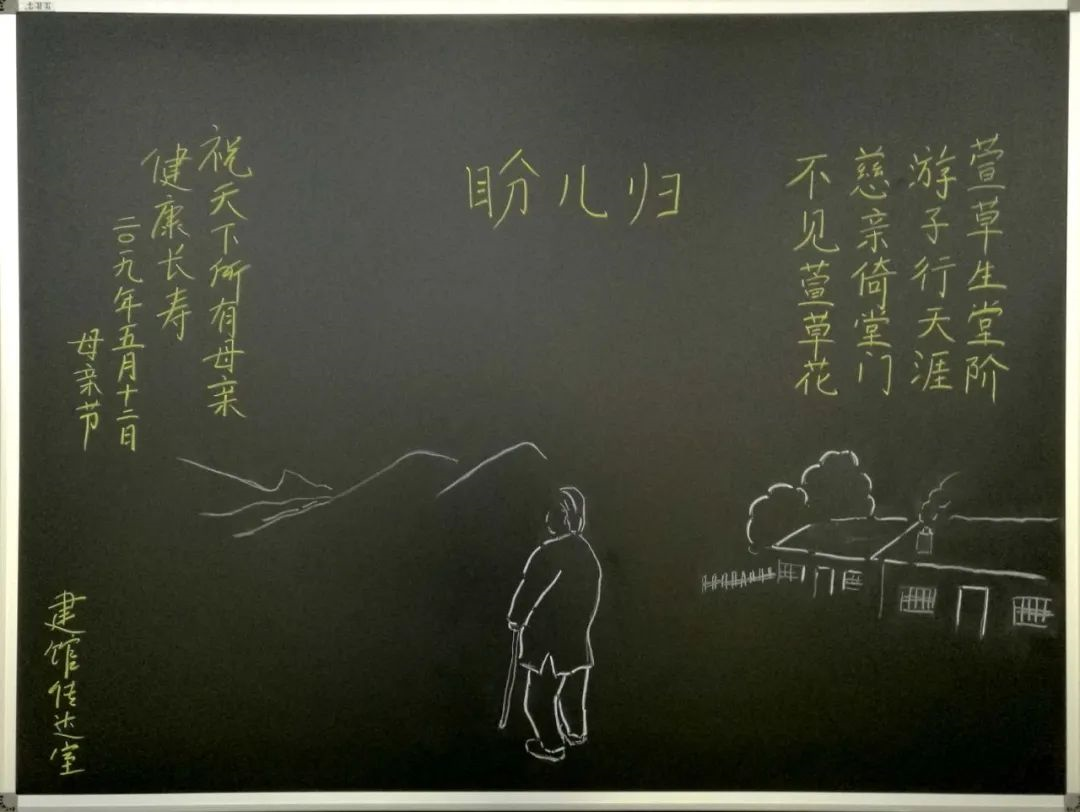 盼儿归
萱草生堂阶
游子行天涯
慈亲倚堂门
不见萱草花
祝天下所有母亲
健康长寿
二〇一九年五月十二日
母亲节
建馆传达室